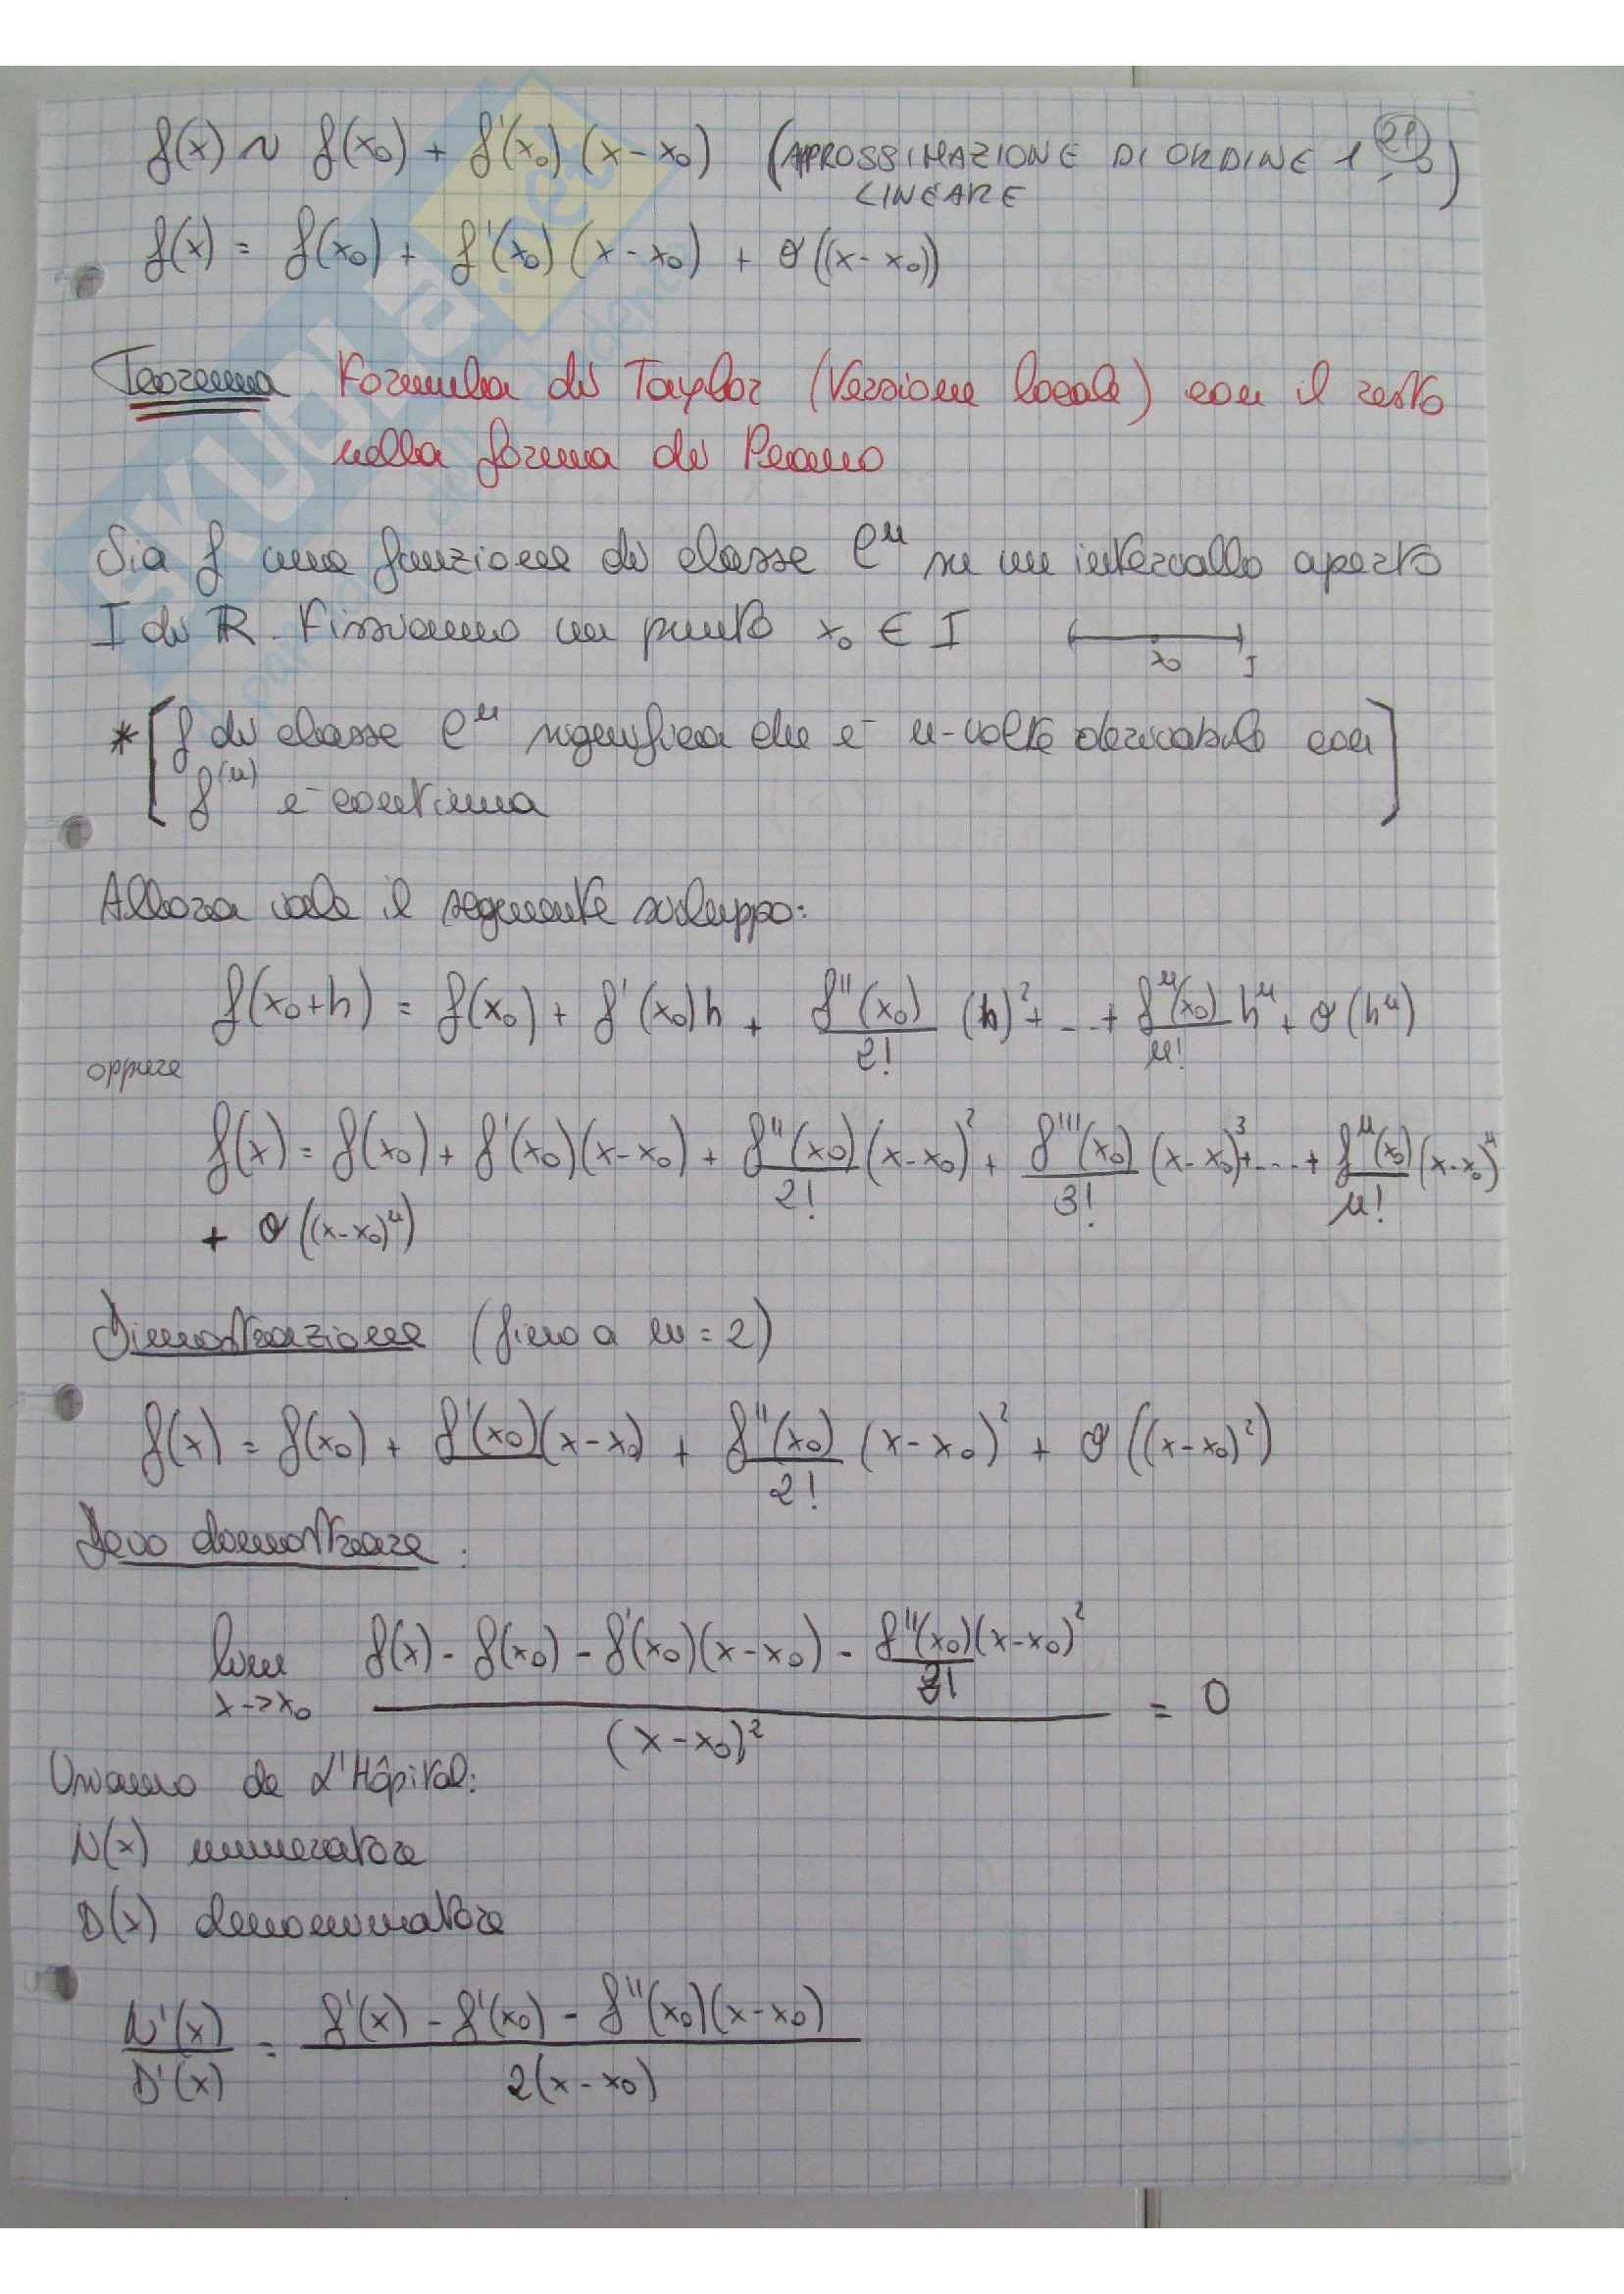 21
f(x) ~ f(x₀) + f'(x₀)(x-x₀) (APPROSSIMAZIONE DI ORDINE 1, o
LINEARE)
f(x) = f(x₀) + f'(x₀)(x-x₀) + o((x-x₀))
Teorema Formula di Taylor (Versione locale) con il resto
nella forma di Peano
Sia f una funzione di classe Cⁿ su un intervallo aperto
I di R. Fissiamo un punto x₀ ∈ I
x₀ I
* [f di classe Cⁿ significa che è n-volte derivabile con
f⁽ⁿ⁾ è continua]
Allora vale il seguente sviluppo:
f(x₀+h) = f(x₀) + f'(x₀)h + f''(x₀)/2! (h)² + ... + fⁿ(x₀)/n! hⁿ + o(hⁿ)
oppure
f(x) = f(x₀) + f'(x₀)(x-x₀) + f''(x₀)/2! (x-x₀)² + f'''(x₀)/3! (x-x₀)³ + ... + fⁿ(x₀)/n! (x-x₀)ⁿ
+ o((x-x₀)ⁿ)
Dimostrazione (fino a n=2)
f(x) = f(x₀) + f'(x₀)(x-x₀) + f''(x₀)/2! (x-x₀)² + o((x-x₀)²)
Devo dimostrare:
lim x->x₀ (f(x) - f(x₀) - f'(x₀)(x-x₀) - f''(x₀)/2! (x-x₀)²) / (x-x₀)² = 0
Usiamo de L'Hôpital:
N(x) numeratore
D(x) denominatore
N'(x)/D'(x) = (f'(x) - f'(x₀) - f''(x₀)(x-x₀)) / 2(x-x₀)
SKUOLA.net